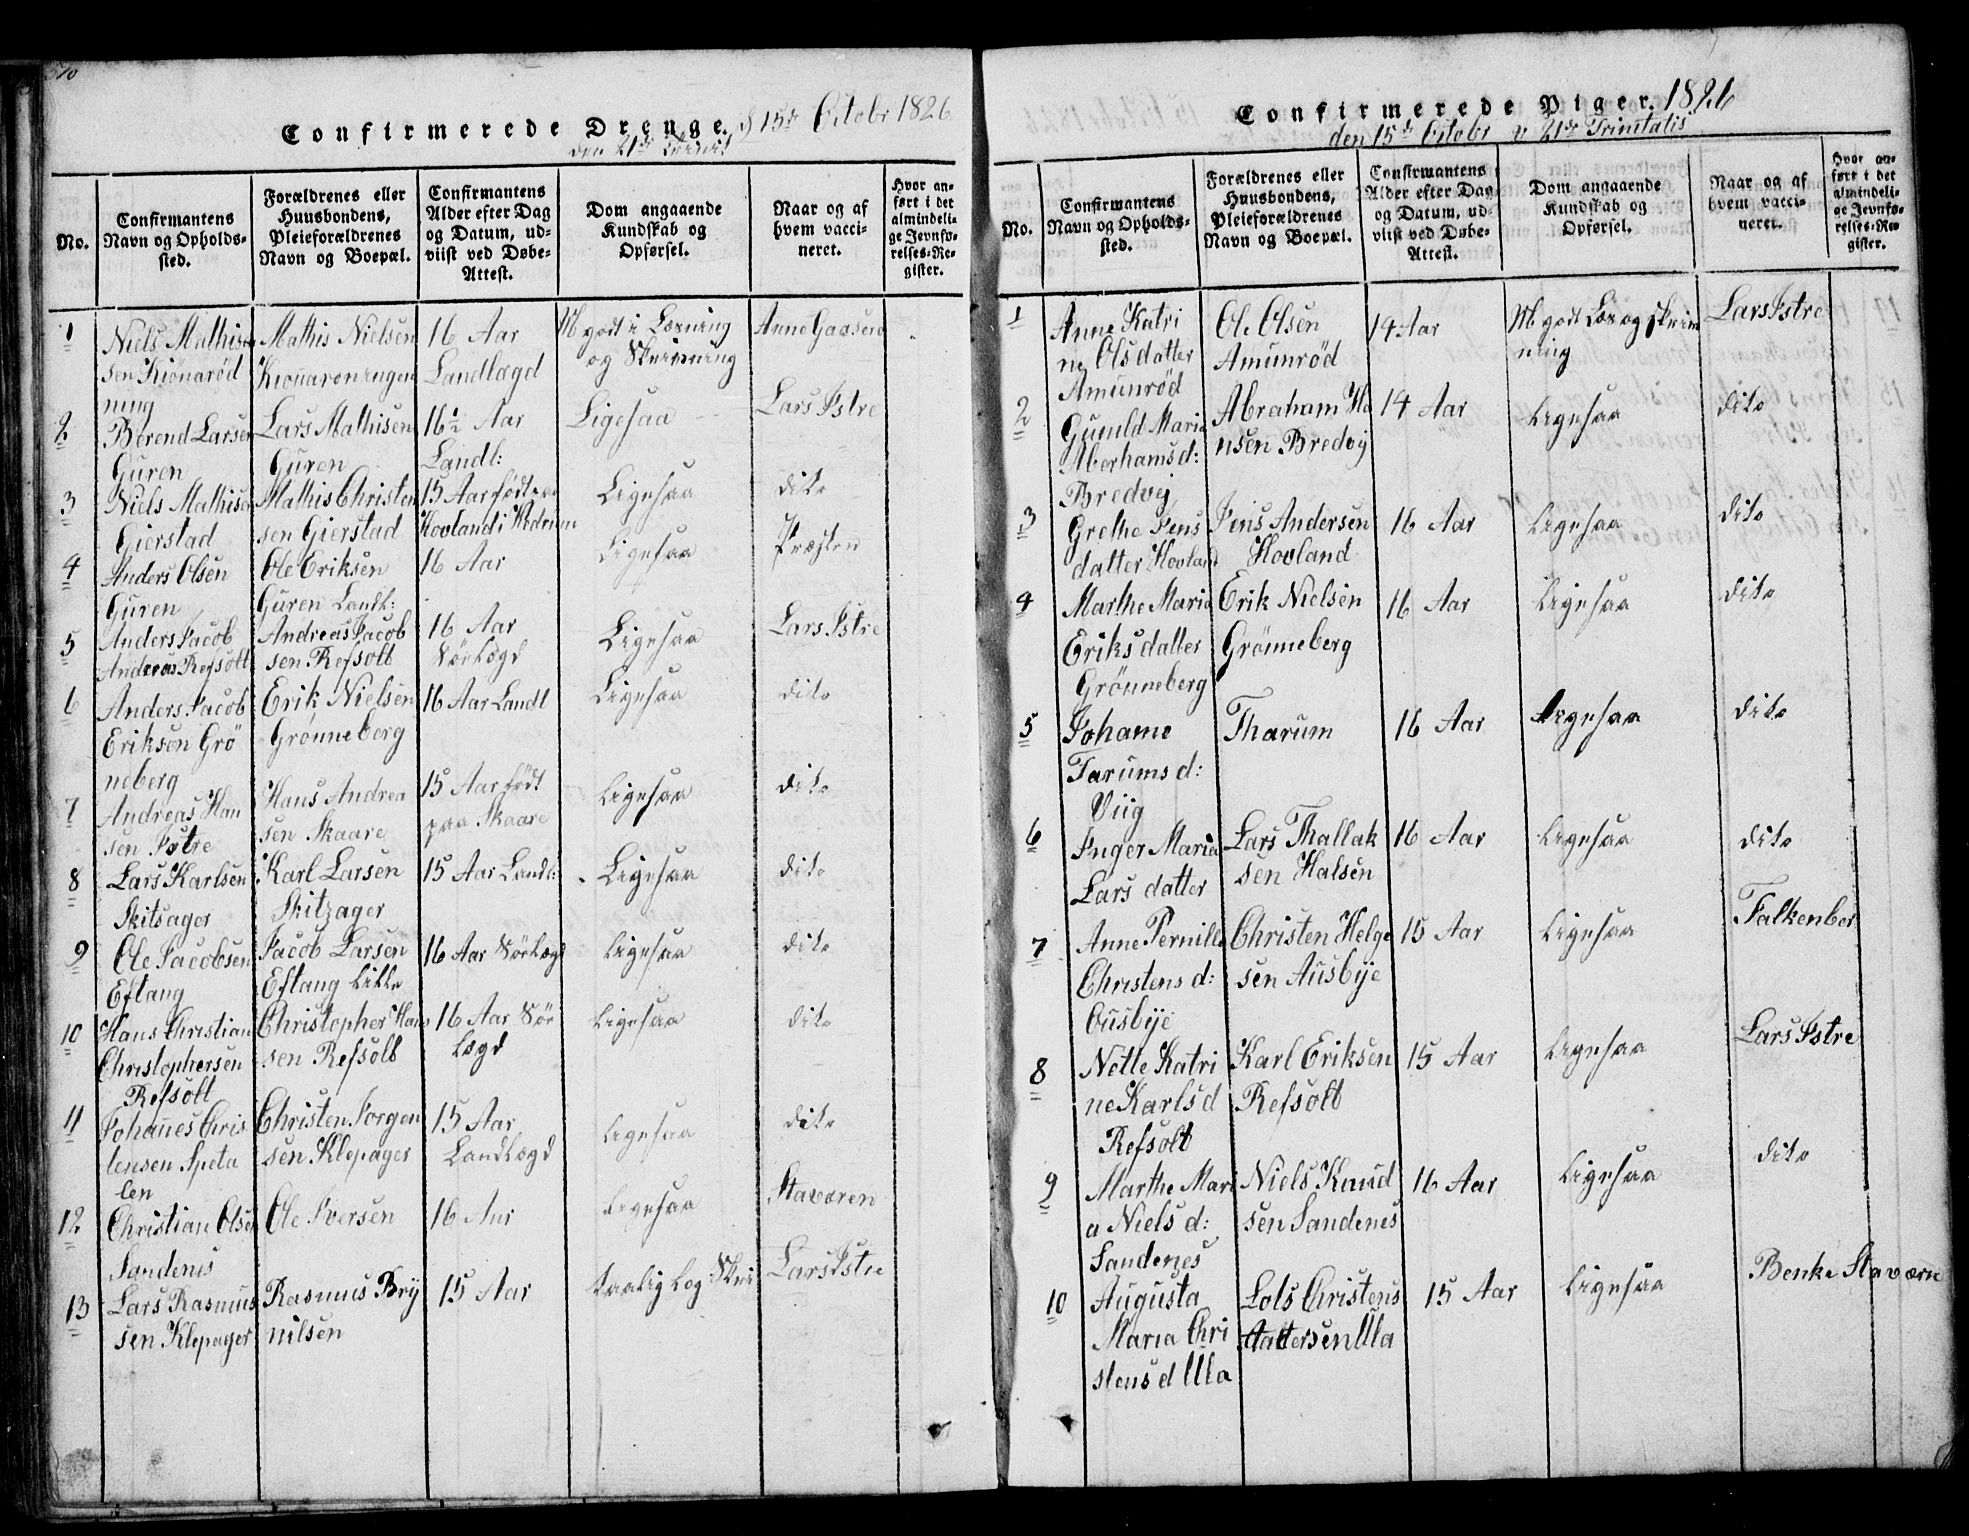 Confirmerede Drenge. d 15de Octobr 1826
den 21de Trinit
No.
Confirmantens
Navn og Opholds-
sted.
Forældrenes eller
Huusbondens,
Pleieforældrenes
Navn og Boepæl.
Confirmantens
Alder efter Dag
og Datum, ud-
viist ved Døbe-
Attest.
Dom angaaende
Kundskab og
Opførsel.
Naar og af
hvem vacci-
neret.
Hvor an-
ført i det
almindeli-
ge Jevnfø-
relses-Re-
gister.
1
Niels Mathise
sen Kionarød
ning
Mathis Nielsen
Kionaroningen
16 Aar
Landlægd
M godt i Læsning
og Skrivning
Anne Gaasera
2
Berend Larsen
Guren
Lars Mathisen
Guren
16½ Aar
Landl:
Ligesaa
Lars Istre
3
Niels Mathisen
Gierstad
Mathis Christen
sen Gierstad
15 Aar født paa
Hovland i Hedrum
Ligesaa
dito
4
Anders Olsen
Guren
Ole Eriksen
Guren Landl:
16 Aar
Ligesaa
Præsten
5
Anders Jacob
Andreas Refsolt
Andreas Jacob
sen Refsolt
16 Aar
Sørlægd
Ligesaa
Lars Istre
6
Anders Jacob
Eriksen Grö
neberg
Erik Nielsen
Grønneberg
16 Aar Landl
Ligesaa
dito
7
Andreas Han
sen Istre
Hans Andrea
sen Skaare
15 Aar født
paa Skaare
Ligesaa
dito
8
Lars Karlsen
Skitsager
Karl Larsen
Skitzager
15 Aar Landl:
Ligesaa
dito
9
Ole Jacobsen
Eftang
Jacob Larsen
Eftang Lille
16 Aar Sørlægd
Ligesaa
dito
10
Hans Christian
Christophersen
Refsolt
Christopher Han
sen Refsolt
16 Aar Sør
Lægd
Ligesaa
dito
11
Johannes Chris
tensen Speta
len
Christen Jorgen
sen Klepager
15 Aar
Landlægd
Ligesaa
dito
12
Christian Olsen
Sandenes
Ole Iversen
16 Aar
Ligesaa
Staværen
13
Lars Rasmus
sen Klepager
Rasmus Bry
nilsen
15 Aar
taalig L og Skri
Lars Istre
Confirmerede Piger. 1826
den 15de Octobr 21de Trinitatis
No.
Confirmantens
Navn og Opholds-
sted.
Forældrenes eller
Huusbondens,
Pleieforældrenes
Navn og Boepæl.
Confirmantens
Alder efter Dag
og Datum, ud-
viist ved Døbe-
Attest.
Dom angaaende
Kundskab og
Opførsel.
Naar og af
hvem vacci-
neret.
Hvor an-
ført i det
almindeli-
ge Jevnfø-
relses-Re-
gister.
1
Anne Katri
ne Olsdatter
Amunrød
Ole Olsen
Amunrød
14 Aar
M godt Læs og skriv
ning
Lars Istre
2
Gunild Maria
Aberhamsd:
Bredvej
Abraham Ha
nsen Bredvej
14 Aar
Ligesaa
dito
3
Grethe Jens
datter Hovland
Jens Andersen
Hovland
16 Aar
Ligesaa
dito
4
Marthe Maria
Eriksdatter
Grönneberg
Erik Nielsen
Grønneberg
16 Aar
Ligesaa
dito
5
Johanne
Tarums d:
Viig
Tharum
16 Aar
Ligesaa
dito
6
Inger Maria
Lars datter
Lars Thallak
sen Halsen
16 Aar
Ligesaa
dito
7
Anne Pernille
Christens d:
Ousbye
Christen Helge
sen Ausbye
15 Aar
Ligesaa
Falkenber
8
Nette Katri
ne Karlsd
Refsolt
Karl Eriksen
Refsolt
15 Aar
Ligesaa
Lars Istre
9
Marthe Mari
a Niels d:
Sandenes
Niels Knud
sen Sandenes
16 Aar
Ligesaa
dito
10
Augusta
Maria Chri
stens d Ula
Lols Christens
Ula
15 Aar
Ligesaa
Benke Staværn